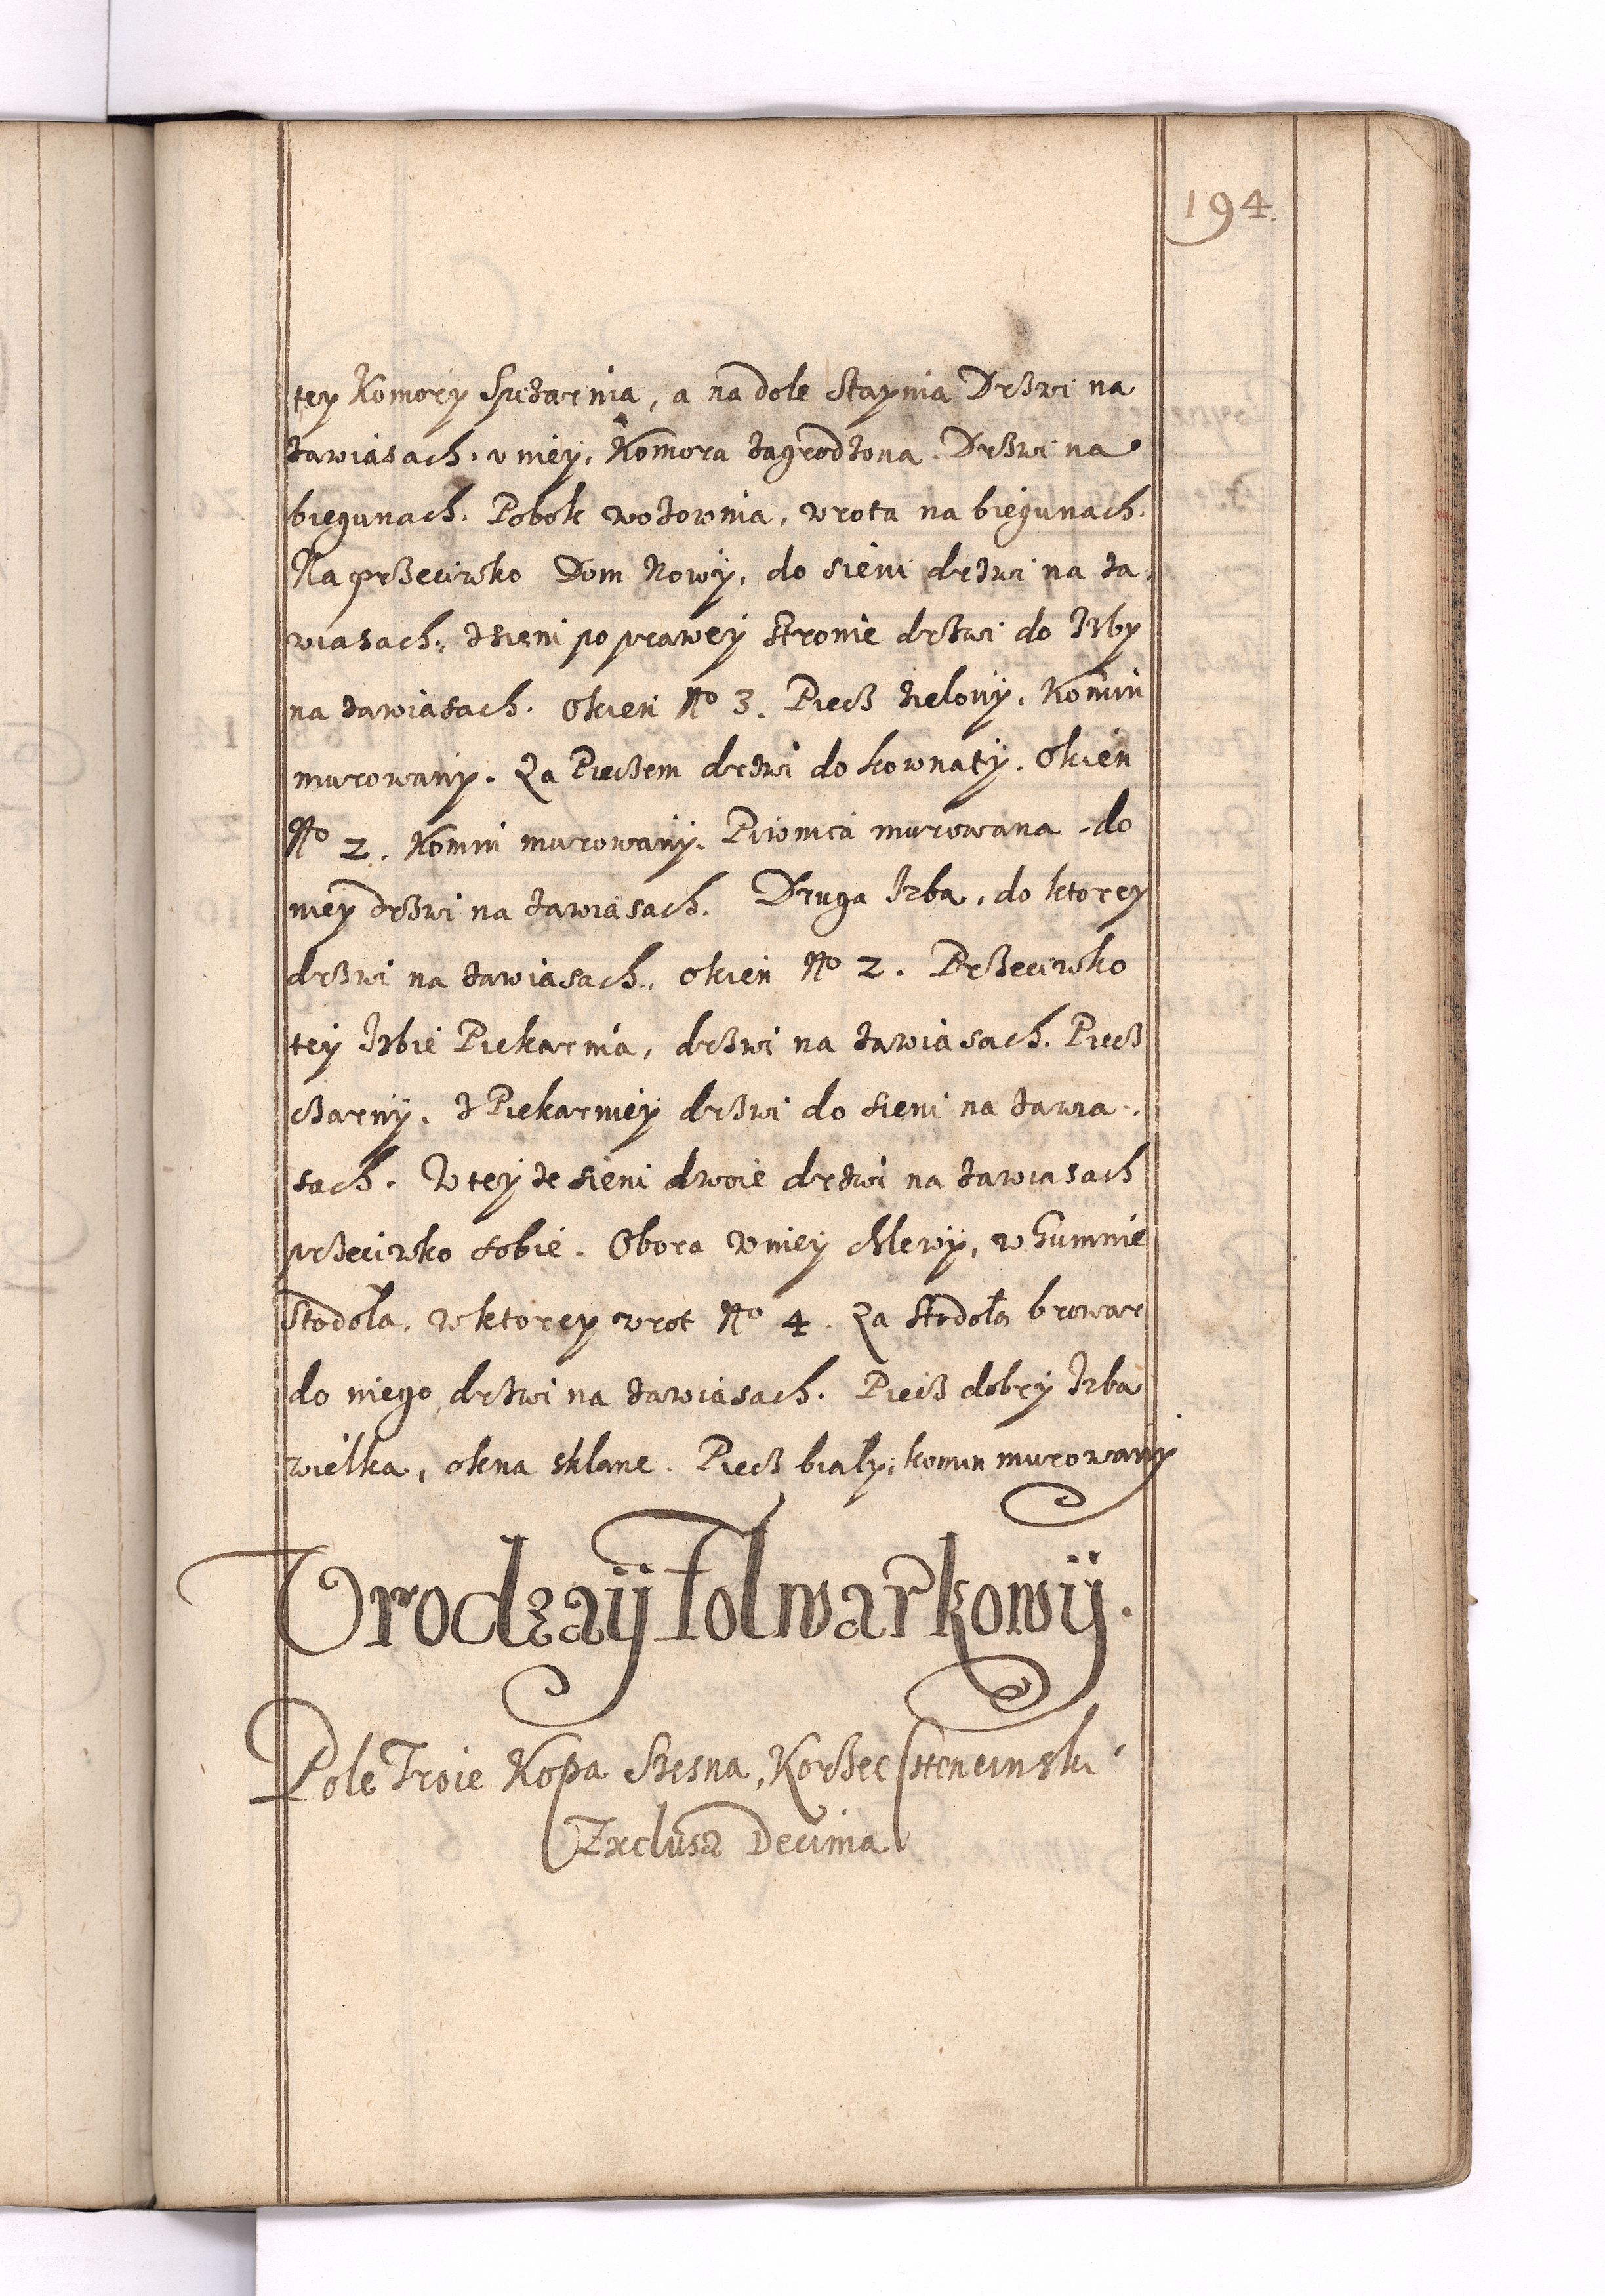 194.
tey Komory Spizarnia, a na dole Staynia Drzwi na
zawiasach. v niey, Komora zagrodzona. Drzwi na
biegunach. Pobok wozownia, wrota na biegunach.
Naprzeciwko Dom Nowy, do sieni drzwi na za,
wiasach, z sieni po prawey stronie drzwi do Izby
na zawiasach. Okien No 3. Piecz zielony, Komin
murowany. Za Pieczem drzwi do kownaty. Okien
No 2. Komin murowany. Piwnica murowana, do
niey drzwi na zawiasach. Druga Izba, do ktorey
drzwi na zawiasach, okien No 2. Przeciwko
tey Izbie Piekarnia, drzwi na zawiasach. Piecz
czarny. z Piekarniey drzwi do sieni na zawia-
sach. W tey ze sieni dwoie drzwi na zawiasach
przeciwko sobie. Obora w niey Chlewy, w Gumnie
Stodoła, w ktorey wrot No 4. Za Stodołą browar
do niego drzwi na zawiasach. Piecz dobry Izba
wielka, okna sklane. Piecz biały, komin murowany
Vrodzaÿ folwarkowÿ.
Pole Troie Kopa Szesna, Korzec
Exclusa Decima